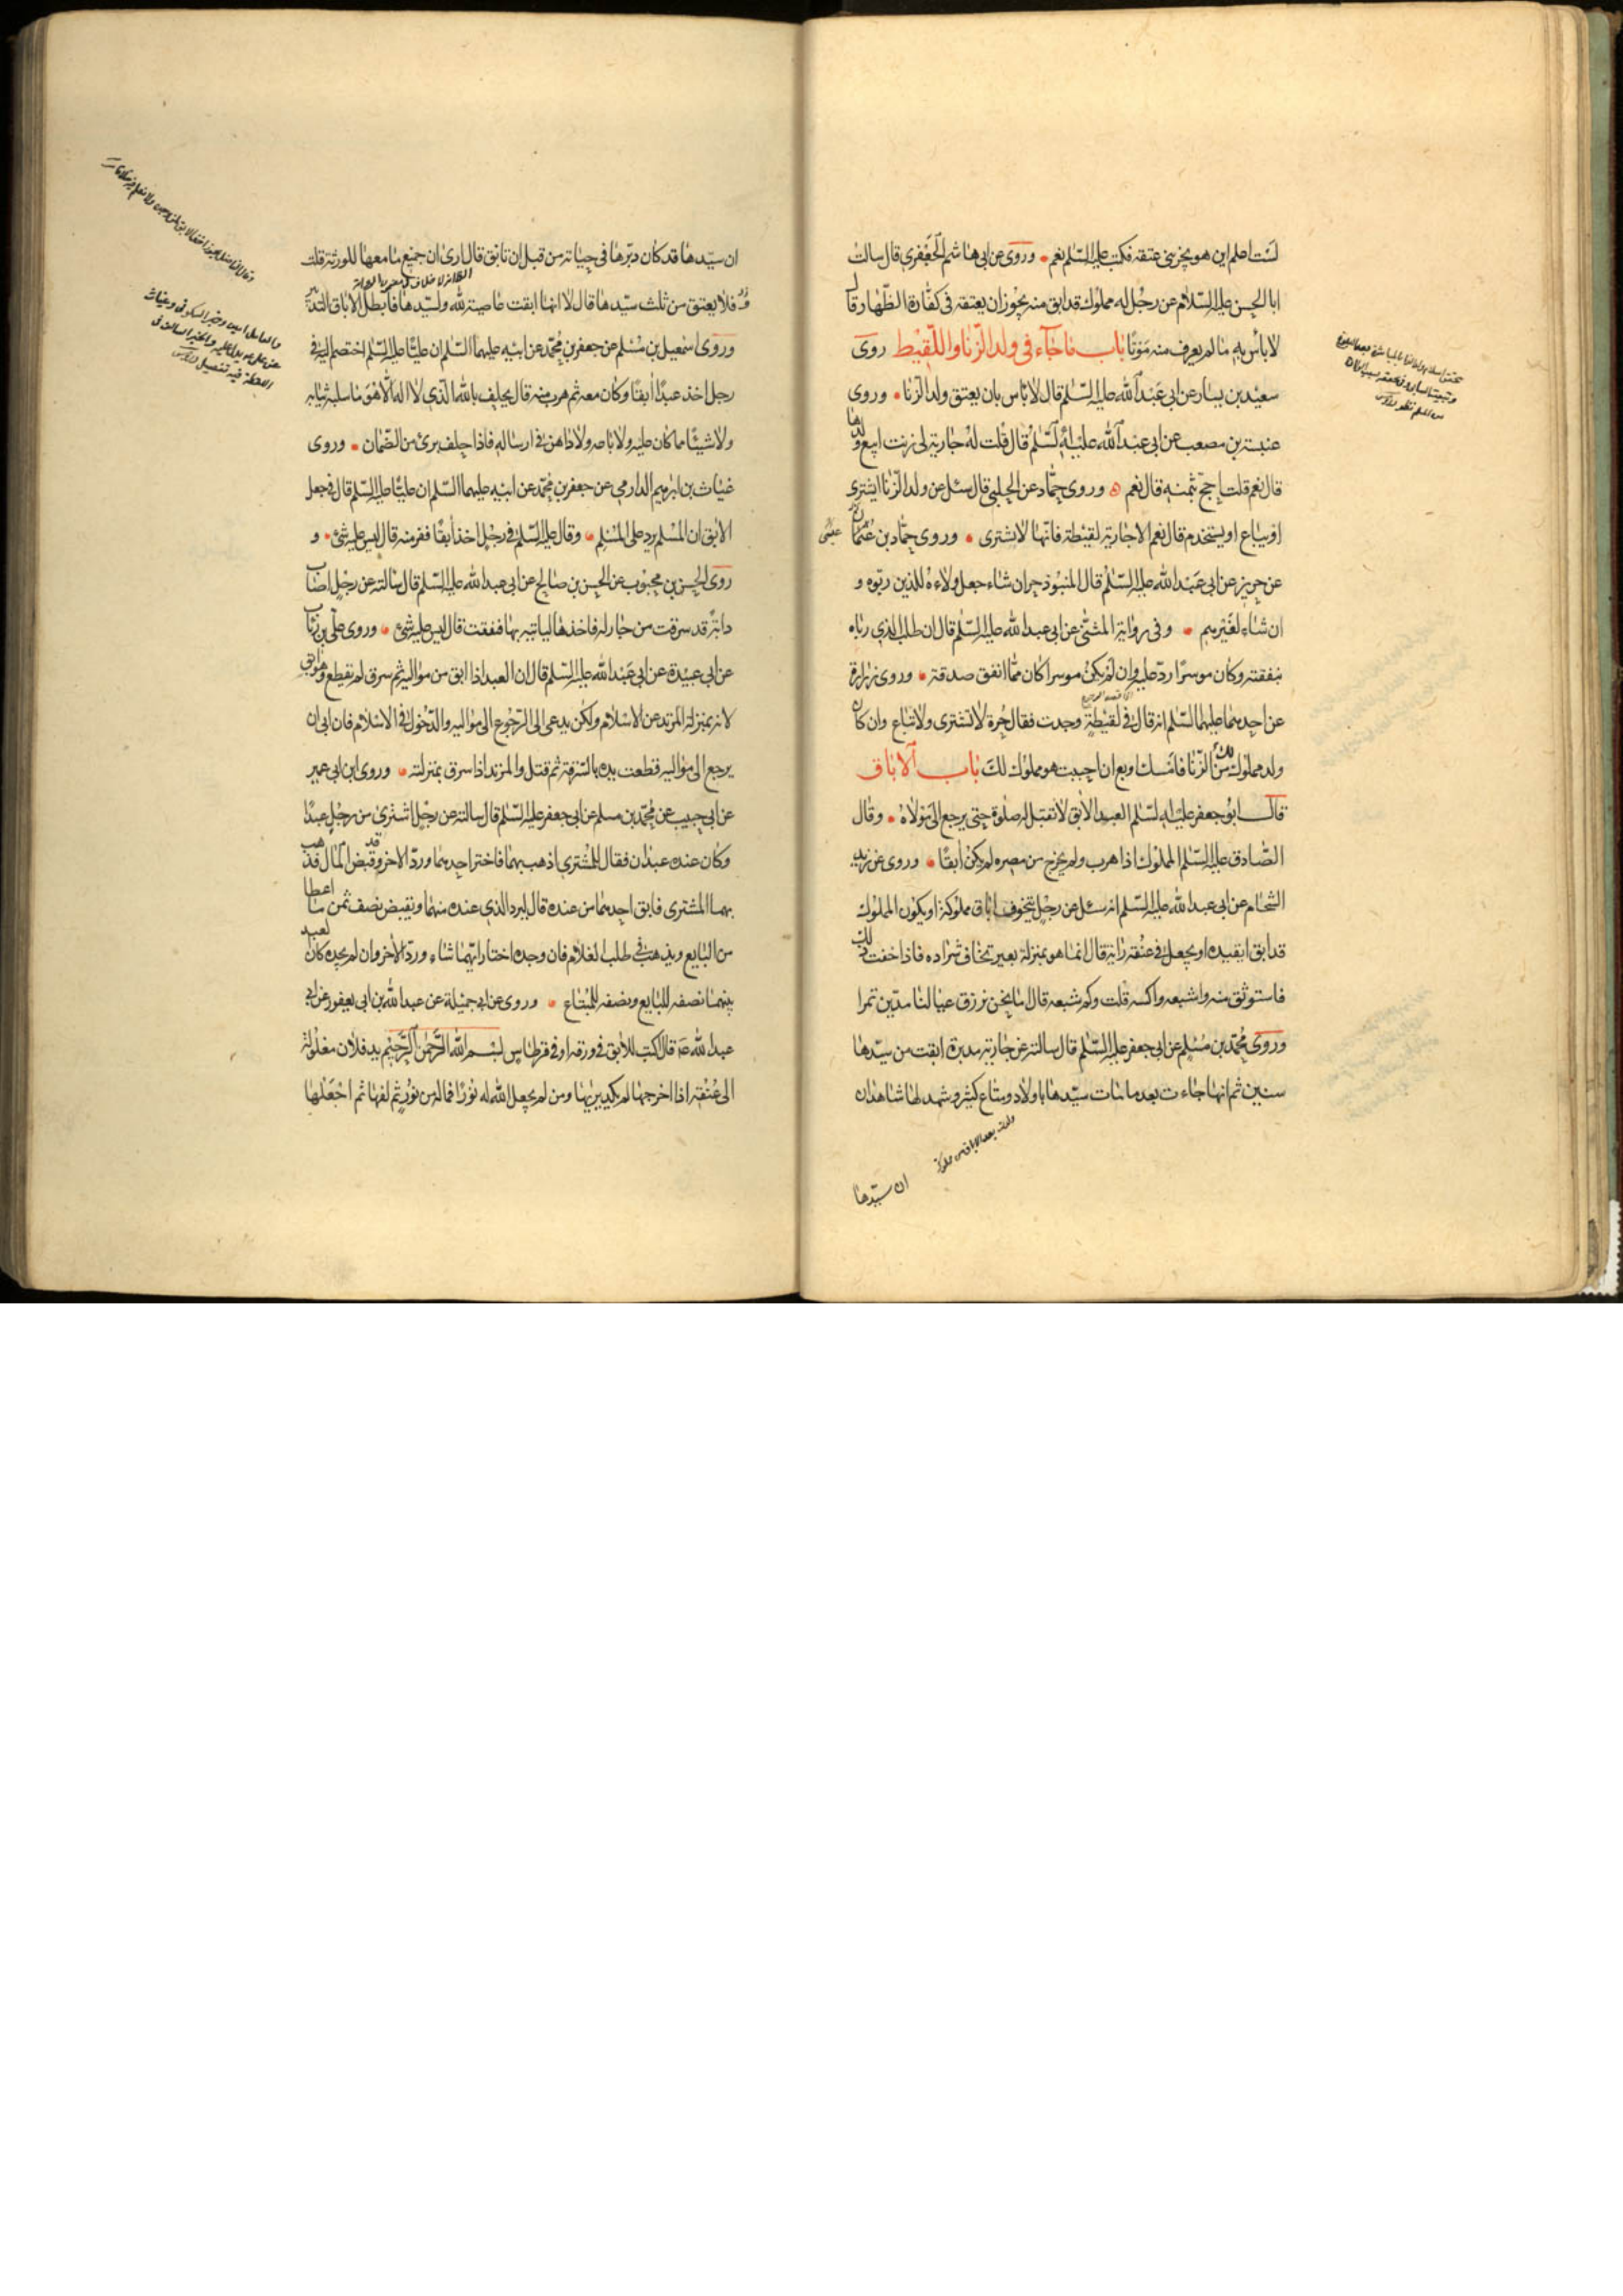 لست اعلم اين هو يجزيني عتقه فكتب عليه السّلم نعم وروى عن ابى هاشم الجعفرى قال سالت
ابا الحسن عليه السّلام عن رجل له مملوك قد ابق منه يجوز ان يعتقه في كفّارة الظّهار قال
لا باس به ما لم يعرف منه موتا باب ما جآء فى ولد الزّنا واللّقيط روى
سعيد بن يسار عن ابى عبد الله عليه السّلم قال لا باس بان يعتق ولد الزّنا وروى
عنبسة بن مصعب عن ابى عبد الله عليه السّلم قال قلت له جارية لى زنت ابيع ولدها
قال نعم قلت احج بثمنه قال نعم ه وروى حمّاد عن الحلبى قال سئل عن ولد الزّنا ايشترى
او يباع او يستخدم قال نعم الا جارية لقيطة فانّها لا تشترى وروى حمّاد بن عثمان
عن حريز عن ابى عبد الله عليه السّلم قال المنبوذ حر ان شاء جعل ولاءه للذين ربوه و
ان شاء لغيرهم وفى رواية المثنّى عن ابى عبد الله عليه السّلم قال ان طلب الذى رباه
بنفقته وكان موسرا ردّ عليه وان لم يكن موسرا كان ممّا انفق صدقة وروى زرارة
عن احدهما عليهما السّلم انه قال فى لقيطة وجدت فقال حرة لا تشترى ولا تباع وان كان
ولد مملوك لك من الزّنا فامسك او بع ان احببت هو مملوك لك باب الاباق
قال ابو جعفر عليه السّلم العبد الآبق لا تقبل له صلوة حتى يرجع الى مولاه وقال
الصّادق عليه السّلم المملوك اذا هرب ولم يخرج من مصره لم يكن آبقا وروى عن زيد
الشحام عن ابى عبد الله عليه السّلم انه سئل عن رجل يتخوف اباق مملوكه او يكون المملوك
قد ابق ايقيده او يجعل فى عنقه راية قال انما هو بمنزلة بعير تخاف شراده فاذا خفت ذلك
فاستوثق منه واشبعه واكسه قلت وكم شبعه قال ما نحن نرزق عيالنا مدّين تمرا
وروى محمّد بن مسلم عن ابى جعفر عليه السّلم قال سالته عن جارية مدبرة ابقت من سيّدها
سنين ثم انها جاءت بعد ما مات سيّدها باولاد ومتاع كثير وشهد لها شاهدان
ان سيّدها
ان سيّدها قد كان دبّرها فى حياته من قبل ان تابق قال ارى ان جميع ما معها للورثة قلت
فلا يعتق من ثلث سيّدها قال لا انها ابقت عاصية لله ولسيّدها فابطل الاباق التدبير
وروى اسمعيل بن مسلم عن جعفر بن محمّد عن ابيه عليهما السّلم ان عليّا عليه السّلم اختصم اليه فى
رجل اخذ عبدا آبقا وكان معه ثم هرب منه قال يحلف بالله الّذى لا اله الّا هو ما سلبه ثيابه
ولا شيئا مما كان عليه ولا باعه ولا داهن فى ارساله فاذا حلف برئ من الضّمان وروى
غياث بن ابرهيم الدارمى عن جعفر بن محمّد عن ابيه عليهما السّلم ان عليّا عليه السّلم قال فى جعل
الآبق ان المسلم يرد على المسلم وقال عليه السّلم فى رجل اخذ آبقا ففر منه قال ليس عليه شئ و
روى الحسن بن محبوب عن الحسن بن صالح عن ابى عبد الله عليه السّلم قال سالته عن رجل اصاب
دابّة قد سرقت من جار له فاخذها لياتيه بها فنفقت قال ليس عليه شئ وروى علىّ بن رئاب
عن ابى عبيدة عن ابى عبد الله عليه السّلم قال ان العبد اذا ابق من مواليه ثم سرق لم يقطع وهو آبق
لانه بمنزلة المرتد عن الاسلام ولكن يدعى الى الرّجوع الى مواليه والدّخول فى الاسلام فان ابى ان
يرجع الى مواليه قطعت يده بالسّرقة ثم قتل والمرتد اذا سرق بمنزلته وروى ابن ابى عمير
عن ابى حبيب عن محمّد بن مسلم عن ابى جعفر عليه السّلم قال سالته عن رجل اشترى من رجل عبدا
وكان عنده عبدان فقال للمشترى اذهب بهما فاختر احدهما وردّ الاخر وقد قبض المال فذهب
بهما المشترى فابق احدهما من عنده قال ليرد الذى عنده منهما ويقبض نصف ثمن ما اعطا
من البايع ويذهب فى طلب الغلام فان وجده اختار ايّهما شاء وردّ الاخر وان لم يجده كان العبد
بينهما نصفه للبايع ونصفه للمبتاع وروى عن ابى جميلة عن عبد الله بن ابى يعفور عن ابى
عبد الله ع قال اكتب للآبق فى ورقة او فى قرطاس بسم الله الرّحمن الرّحيم يد فلان مغلولة
الى عنقه اذا اخرجها لم يكد يريها ومن لم يجعل الله له نورا فماله من نور ثم لفها ثم اجعلها